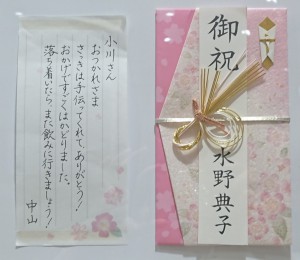 小川さん
おつかれさま
さっきは手伝ってくれて、ありがとう！
おかげですごくはかどりました。
落ち着いたら、また飲みに行きましょう！
中山
御祝
水野典子